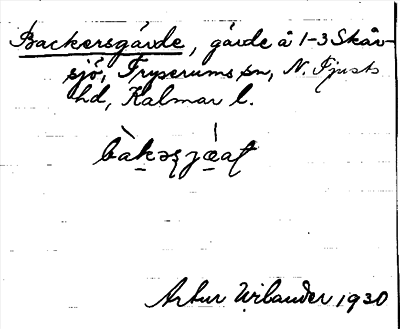 Backersgärde, gärde å 1-3 Skår-
sjö, Tryserums sn, N. Tjusts
hd, Kalmar l.
Artur Wilander 1930